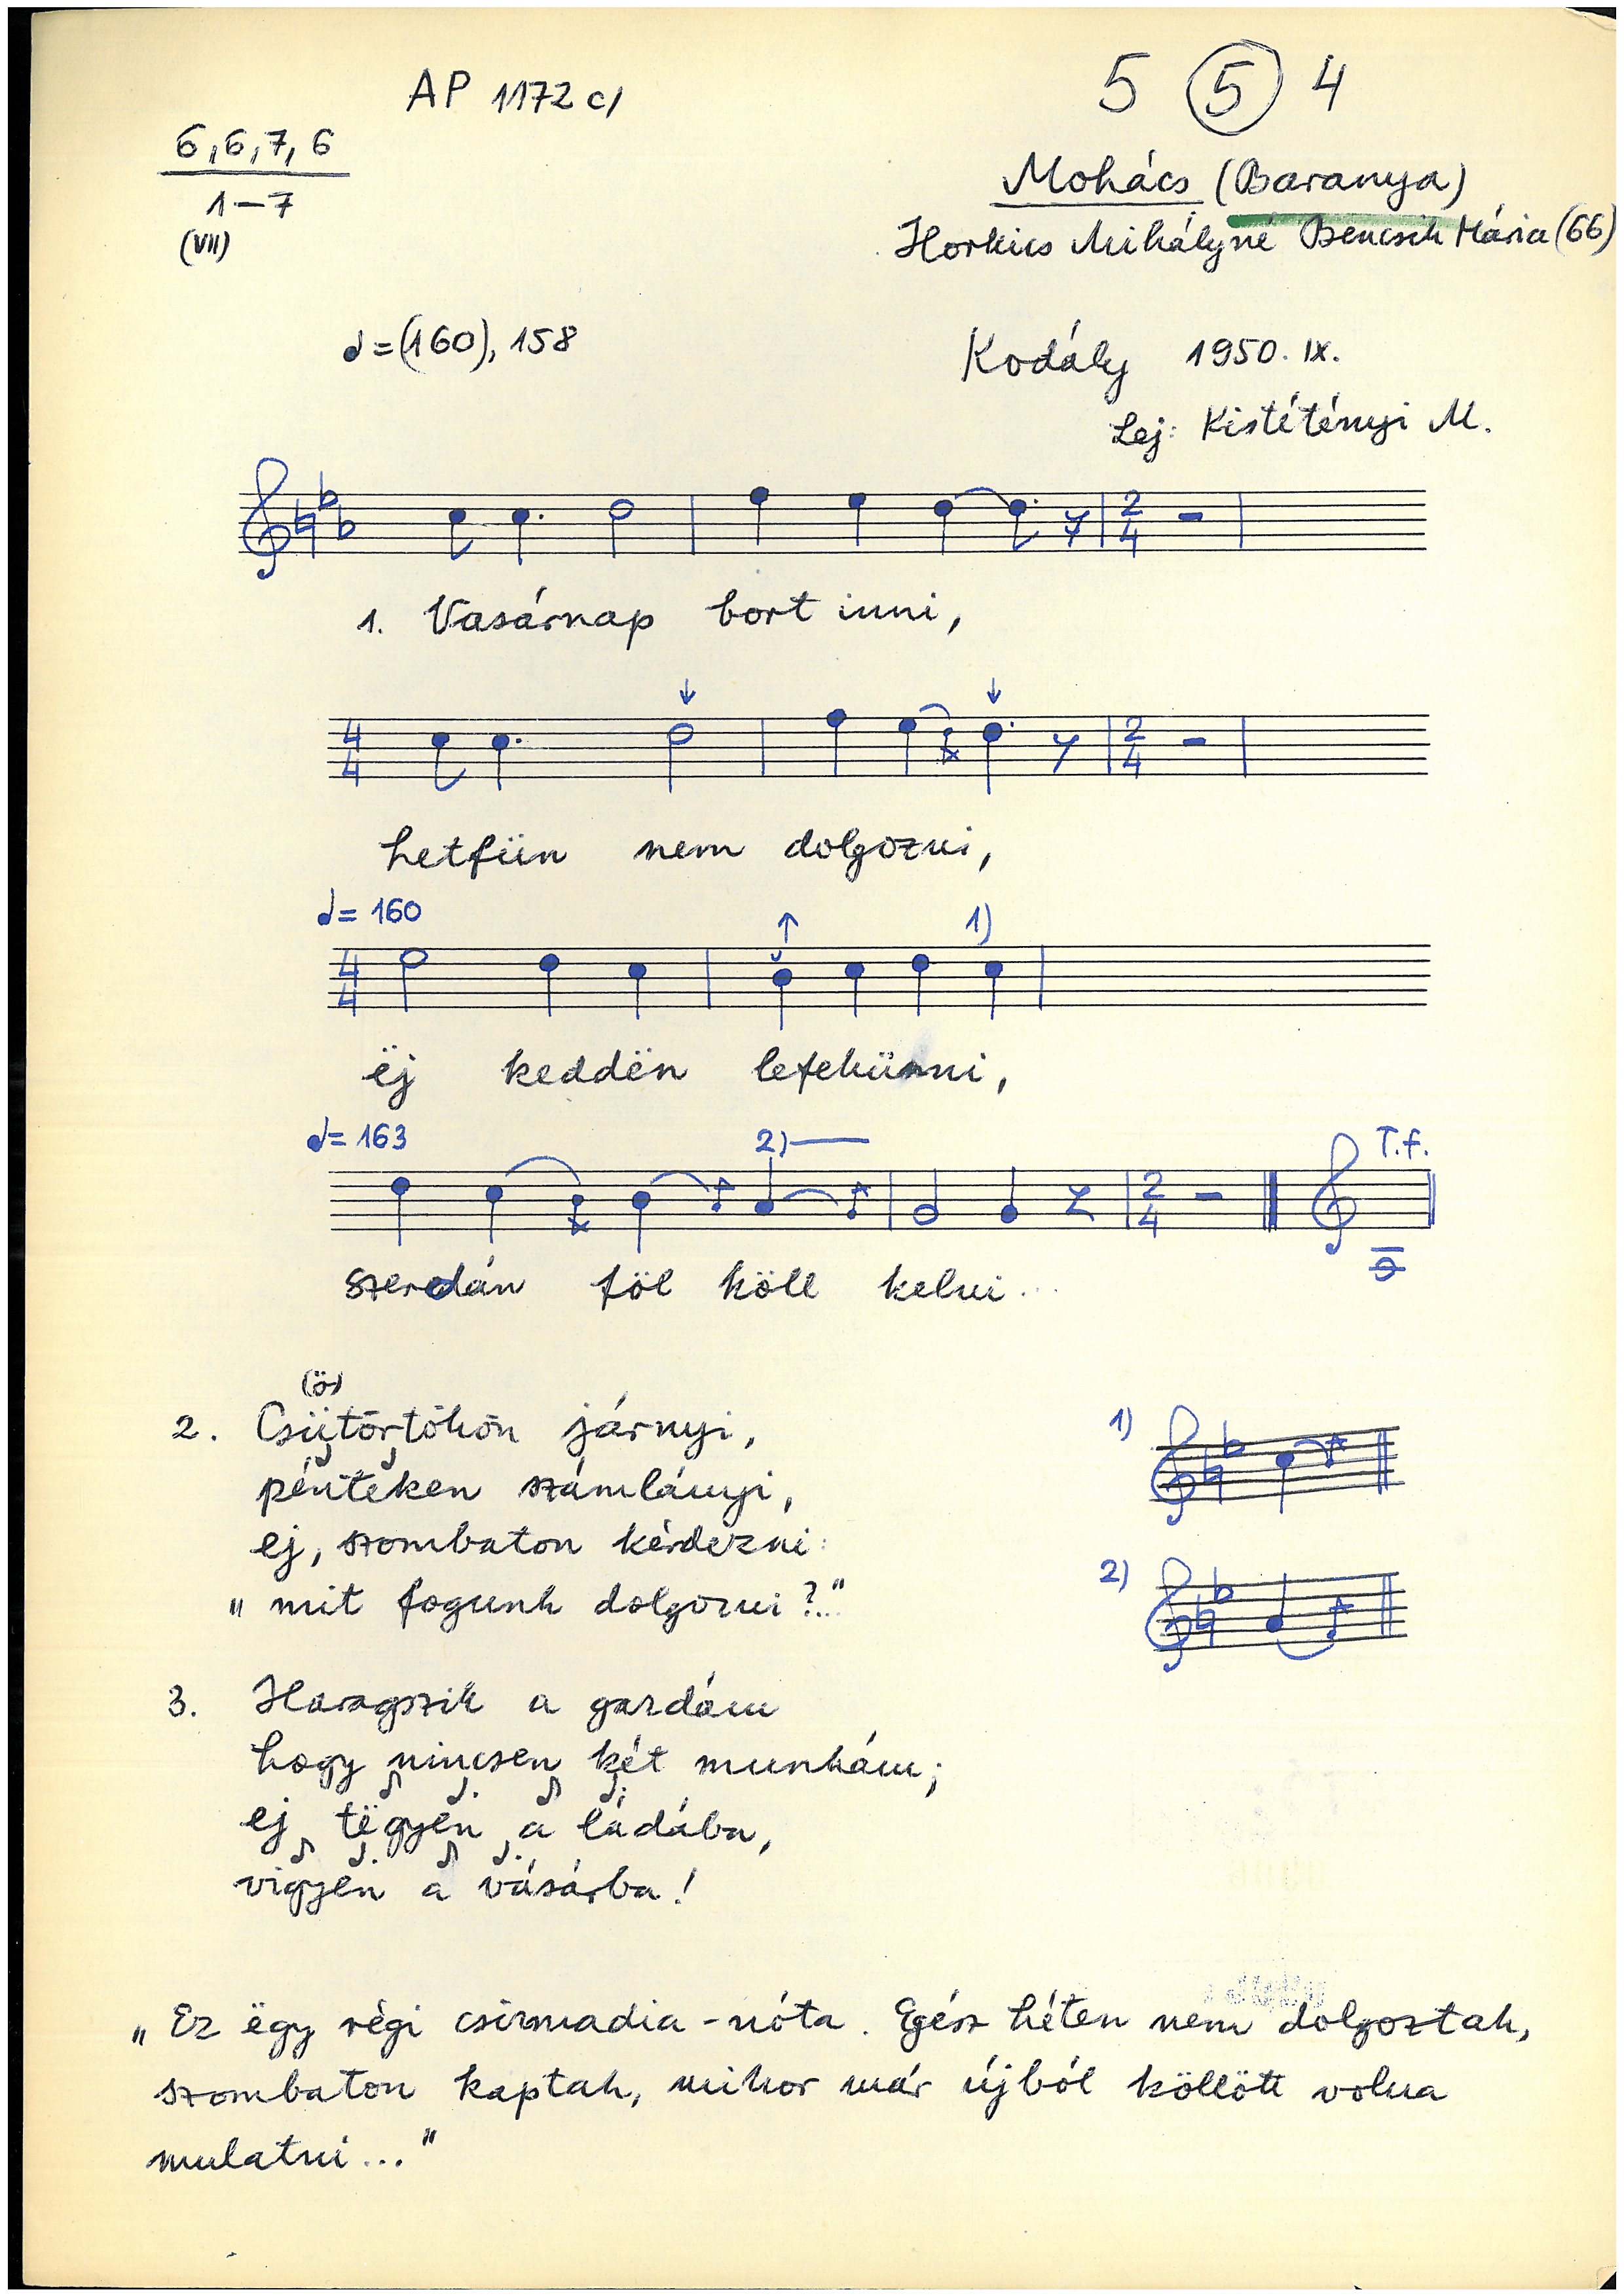 AP 1172 c/
5 5 4
6,6,7,6
1–7
(VII)
Mohács (Baranya)
Horkics Mihályné Bencsik Mária (66)
♩=(160), 158
Kodály 1950. IX.
Lej: Kistétényi M.
1. Vasárnap bort inni,
2
4
4
4
2
4
hetfün nem dolgozni,
♩= 160
1)
4
4
ëj keddën lefekünni,
♩= 163
2)
T.f.
2
4
szerdán föl köll kelni...
(ö)
2. Csütörtökön járnyi,
1)
pénteken számlányi,
ej, szombaton kérdezni:
2)
„mit fogunk dolgozni?..."
3. Haragszik a gazdám
hogy nincsen két munkám;
ej tëgyen a ládába,
vigyen a vásárba!
„Ez ëgy régi csizmadia-nóta. Egész héten nem dolgoztak,
szombaton kaptak, mikor már újból köllött volna
mulatni..."